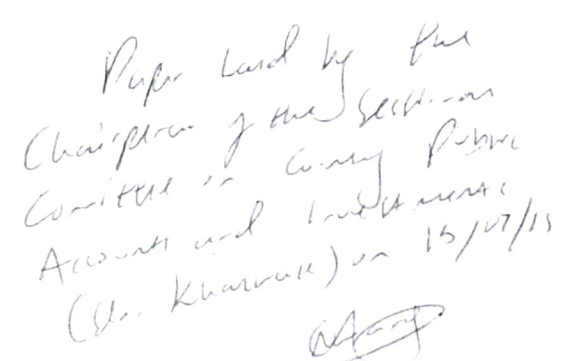 Paper laid by the
Chairperson of the Sessional
Committee on County Public
Accounts and Investments
(Sen. Khaniri) on